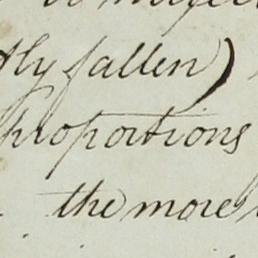 tly fallen)
proportions
the more